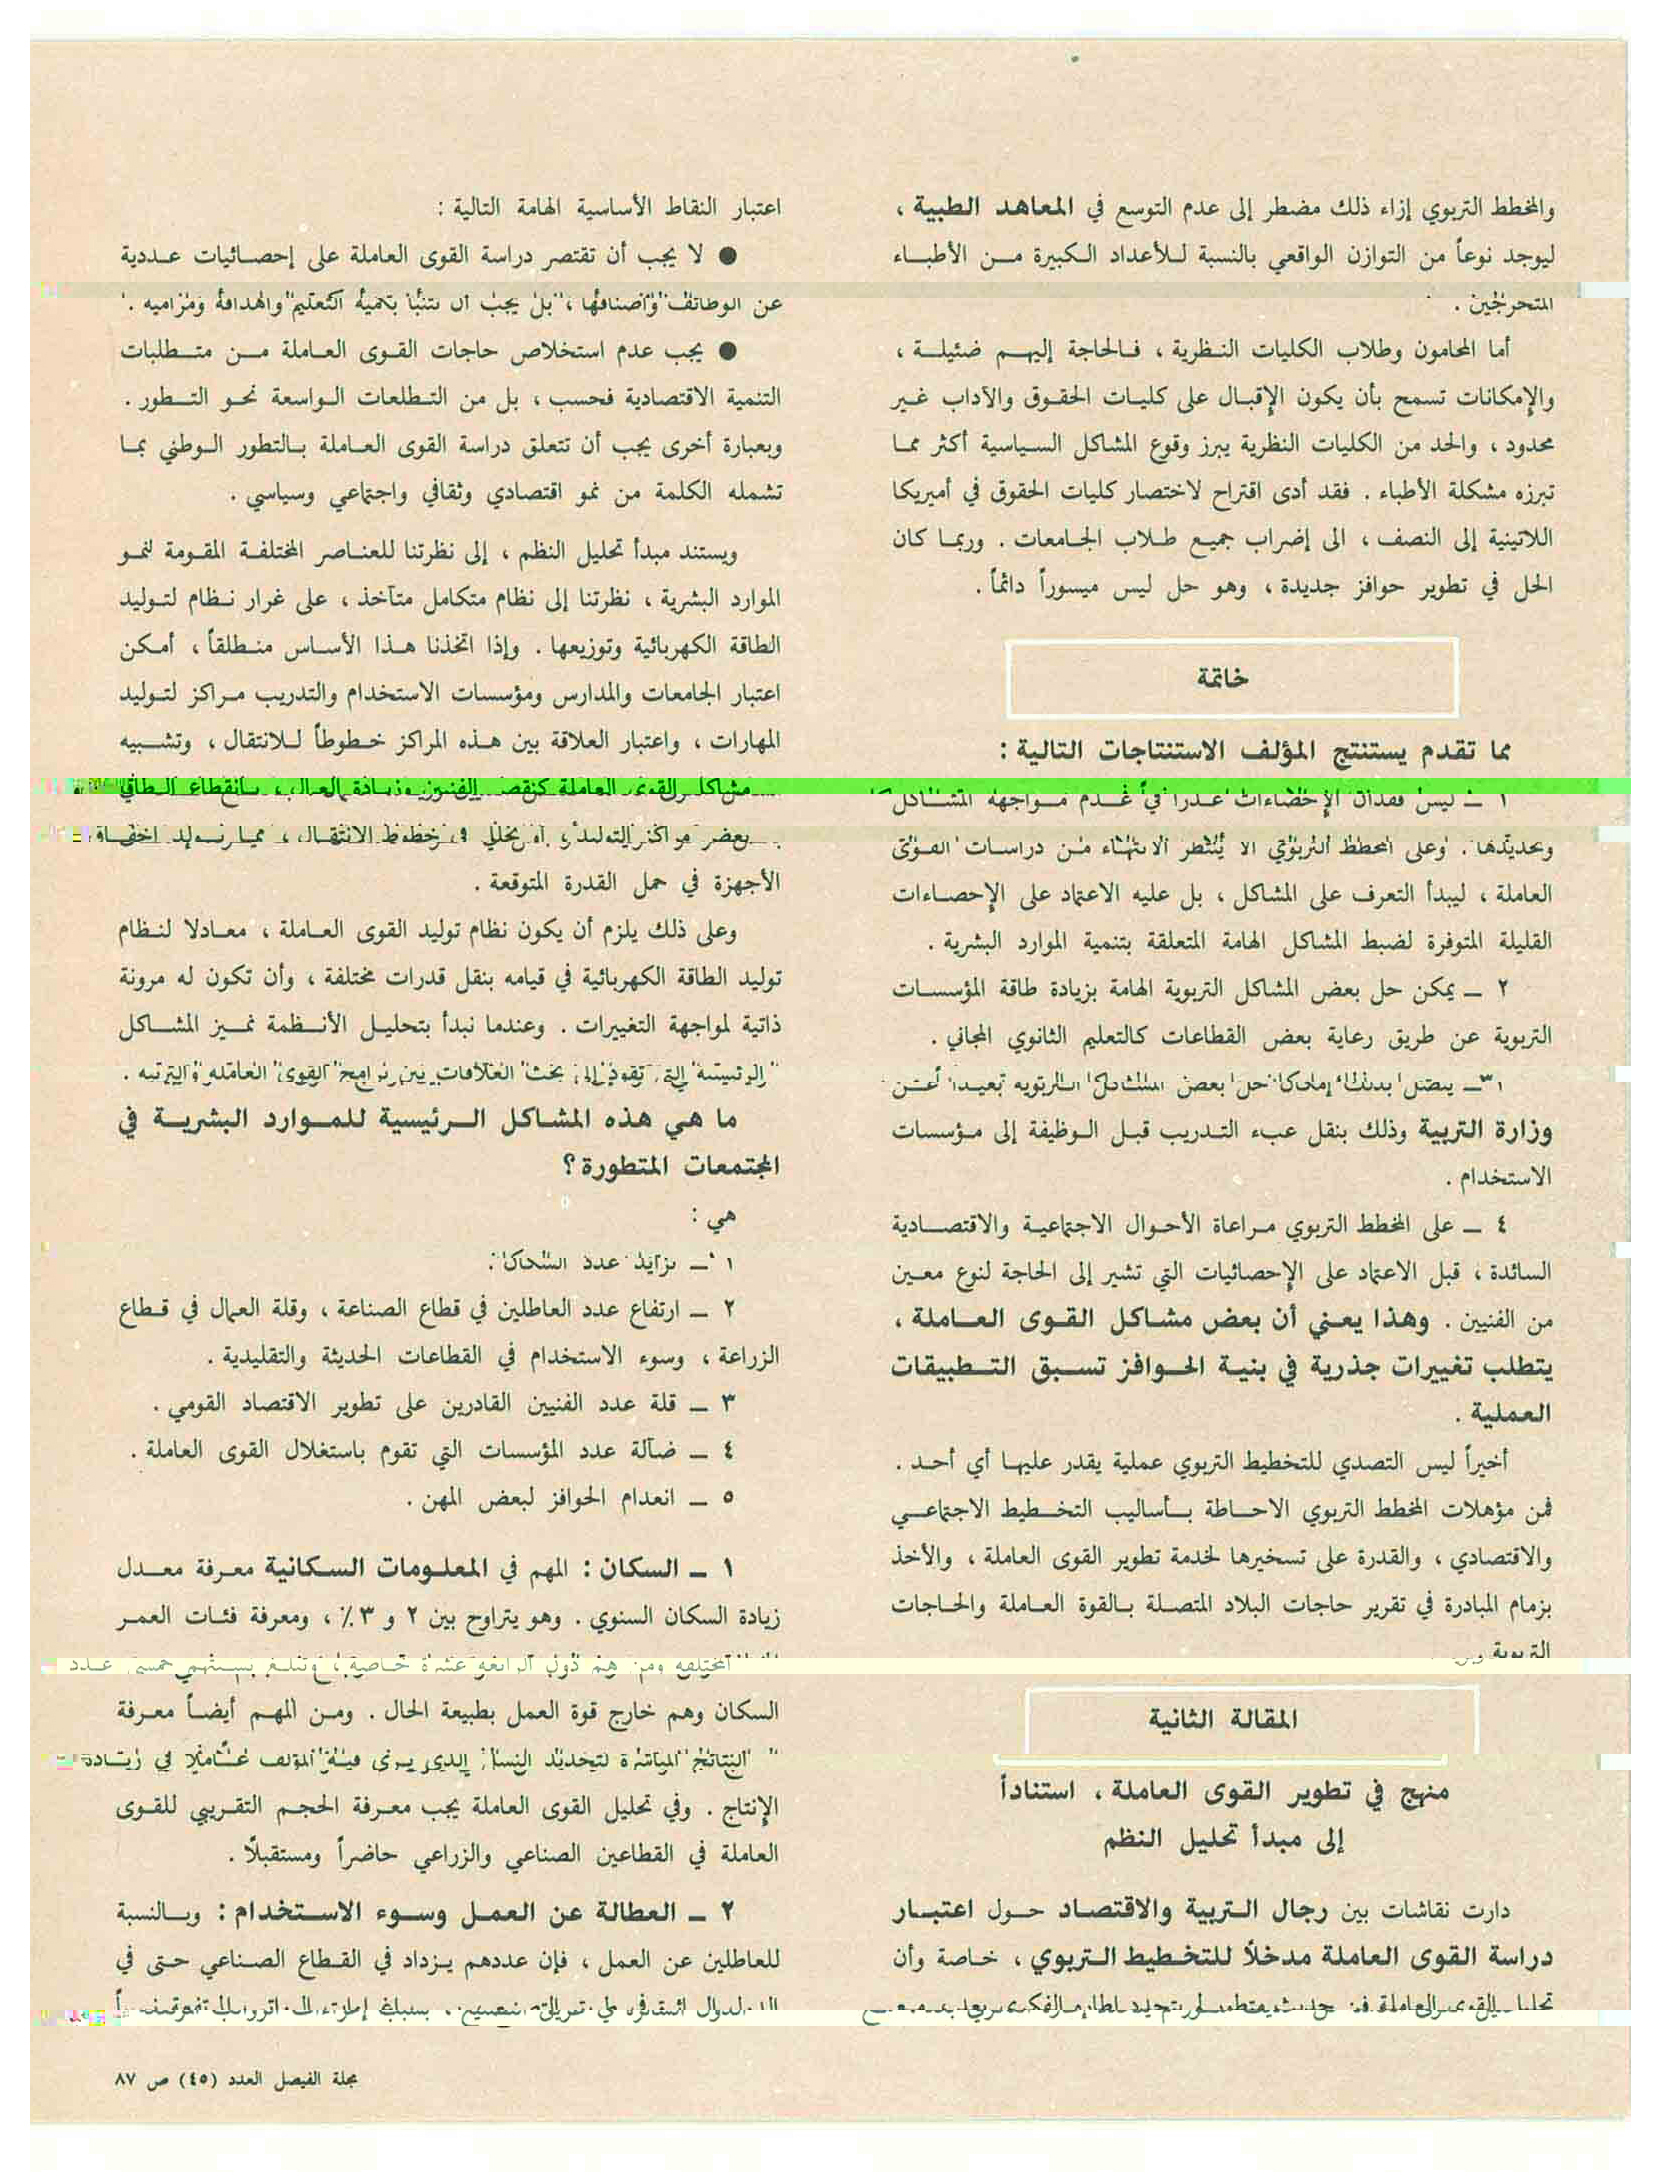 والمخطط التربوي إزاء ذلك مضطر إلى عدم التوسع في المعاهد الطبية ،
ليوجد نوعاً من التوازن الواقعي بالنسبة للأعداد الكبيرة من الأطباء
المتخرجين .
أما المحامون وطلاب الكليات النظرية ، فالحاجة إليهم ضئيلة ،
والإمكانات تسمح بأن يكون الإقبال على كليات الحقوق والآداب غير
محدود ، والحد من الكليات النظرية يبرز وقوع المشاكل السياسية أكثر مما
تبرزه مشكلة الأطباء . فقد أدى اقتراح لاختصار كليات الحقوق في أميريكا
اللاتينية إلى النصف ، الى إضراب جميع طلاب الجامعات . وربما كان
الحل في تطوير حوافز جديدة ، وهو حل ليس ميسوراً دائماً .
خاتمة
مما تقدم يستنتج المؤلف الاستنتاجات التالية :
١ ـ ليس فقدان الإحصاءات عذراً في عدم مواجهة المشاكل
وتحديدها . وعلى المخطط التربوي ألا ينتظر الانتهاء من دراسات القوى
العاملة ، ليبدأ التعرف على المشاكل ، بل عليه الاعتماد على الإحصاءات
القليلة المتوفرة لضبط المشاكل الهامة المتعلقة بتنمية الموارد البشرية .
٢ ـ يمكن حل بعض المشاكل التربوية الهامة بزيادة طاقة المؤسسات
التربوية عن طريق رعاية بعض القطاعات كالتعليم الثانوي المجاني .
٣ ـ يتصل بذلك إمكان حل بعض المشاكل التربوية بعيداً عن
وزارة التربية وذلك بنقل عبء التدريب قبل الوظيفة إلى مؤسسات
الاستخدام .
٤ ـ على المخطط التربوي مراعاة الأحوال الاجتماعية والاقتصادية
السائدة ، قبل الاعتماد على الإحصائيات التي تشير إلى الحاجة لنوع معين
من الفنيين . وهذا يعني أن بعض مشاكل القوى العاملة ،
يتطلب تغييرات جذرية في بنية الحوافز تسبق التطبيقات
العملية .
أخيراً ليس التصدي للتخطيط التربوي عملية يقدر عليها أي أحد .
فمن مؤهلات المخطط التربوي الاحاطة بأساليب التخطيط الاجتماعي
والاقتصادي ، والقدرة على تسخيرها لخدمة تطوير القوى العاملة ، والأخذ
بزمام المبادرة في تقرير حاجات البلاد المتصلة بالقوة العاملة والحاجات
التربوية
المقالة الثانية
منهج في تطوير القوى العاملة ، استناداً
إلى مبدأ تحليل النظم
دارت نقاشات بين رجال التربية والاقتصاد حول اعتبار
دراسة القوى العاملة مدخلاً للتخطيط التربوي ، خاصة وأن
تحليل القوى العاملة
اعتبار النقاط الأساسية الهامة التالية :
● لا يجب أن تقتصر دراسة القوى العاملة على إحصائيات عددية
عن الوظائف وأصنافها ، بل يجب أن تتنبأ بكمية التعليم وأهدافه ومراميه .
● يجب عدم استخلاص حاجات القوى العاملة من متطلبات
التنمية الاقتصادية فحسب ، بل من التطلعات الواسعة نحو التطور .
وبعبارة أخرى يجب أن تتعلق دراسة القوى العاملة بالتطور الوطني بما
تشمله الكلمة من نمو اقتصادي وثقافي واجتماعي وسياسي .
ويستند مبدأ تحليل النظم ، إلى نظرتنا للعناصر المختلفة المقومة لنمو
الموارد البشرية ، نظرتنا إلى نظام متكامل متآخذ ، على غرار نظام لتوليد
الطاقة الكهربائية وتوزيعها . وإذا اتخذنا هذا الأساس منطلقاً ، أمكن
اعتبار الجامعات والمدارس ومؤسسات الاستخدام والتدريب مراكز لتوليد
المهارات ، واعتبار العلاقة بين هذه المراكز خطوطاً للانتقال ، وتشبيه
مشاكل القوى العاملة كنقص الفنيين وزيادة العمال ، بانقطاع الطاقة
بعض مراكز التوليد ، أو بخلل في خطوط الانتقال ، مما يولد اخفاق
الأجهزة في حمل القدرة المتوقعة .
وعلى ذلك يلزم أن يكون نظام توليد القوى العاملة ، معادلا لنظام
توليد الطاقة الكهربائية في قيامه بنقل قدرات مختلفة ، وأن تكون له مرونة
ذاتية لمواجهة التغييرات . وعندما نبدأ بتحليل الأنظمة نميز المشاكل
الرئيسية التي تقود إلى بحث العلاقات بين برامج القوى العاملة والتربية .
ما هي هذه المشاكل الرئيسية للموارد البشرية في
المجتمعات المتطورة ؟
هي :
١ ـ تزايد عدد السكان .
٢ ـ ارتفاع عدد العاطلين في قطاع الصناعة ، وقلة العمال في قطاع
الزراعة ، وسوء الاستخدام في القطاعات الحديثة والتقليدية .
٣ ـ قلة عدد الفنيين القادرين على تطوير الاقتصاد القومي .
٤ ـ ضآلة عدد المؤسسات التي تقوم باستغلال القوى العاملة .
٥ ـ انعدام الحوافز لبعض المهن .
١ ـ السكان : المهم في المعلومات السكانية معرفة معدل
زيادة السكان السنوي . وهو يتراوح بين ٢ و ٣٪ ، ومعرفة فئات العمر
المختلفة ومن هم دون الرابعة عشرة خاصة ، وتبلغ نسبتهم خمس عدد
السكان وهم خارج قوة العمل بطبيعة الحال . ومن المهم أيضاً معرفة
النتائج المباشرة لتحديد النسل الذي يرى فيه المؤلف عاملا في زيادة
الإنتاج . وفي تحليل القوى العاملة يجب معرفة الحجم التقريبي للقوى
العاملة في القطاعين الصناعي والزراعي حاضراً ومستقبلاً .
٢ ـ العطالة عن العمل وسوء الاستخدام : وبالنسبة
للعاطلين عن العمل ، فإن عددهم يزداد في القطاع الصناعي حتى في
مجلة الفيصل العدد (٤٥) ص ٨٧